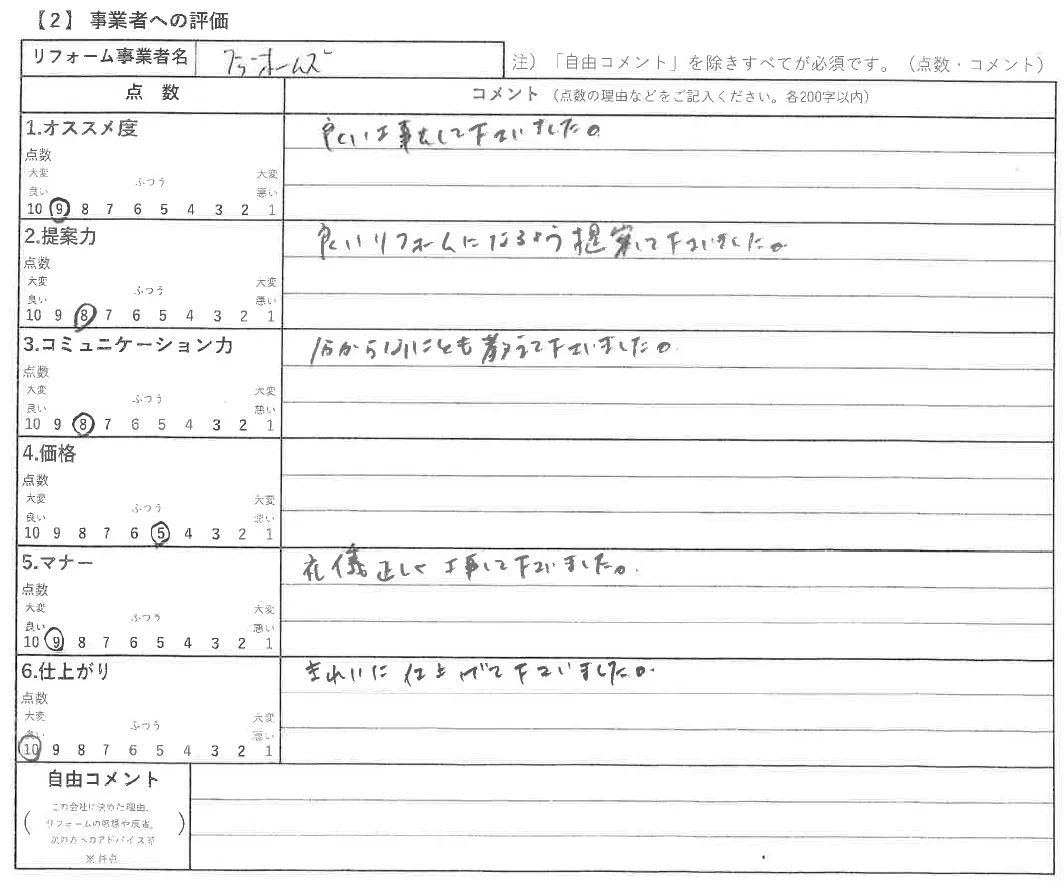 【2】 事業者への評価
リフォーム事業者名
注）「自由コメント」を除きすべてが必須です。（点数・コメント）
点 数 コメント （点数の理由などをご記入ください。各200字以内）
1.オススメ度 良い工事をして下さいました。
点数
大変 ふつう 大変
良い 悪い
10 9 8 7 6 5 4 3 2 1
2.提案力 良いリフォームになるよう提案して下さいました。
点数
大変 ふつう 大変
良い 悪い
10 9 8 7 6 5 4 3 2 1
3.コミュニケーション力 分からないことも教えて下さいました。
点数
大変 ふつう 大変
良い 悪い
10 9 8 7 6 5 4 3 2 1
4.価格
点数
大変 ふつう 大変
良い 悪い
10 9 8 7 6 5 4 3 2 1
5.マナー 礼儀正しく工事して下さいました。
点数
大変 ふつう 大変
良い 悪い
10 9 8 7 6 5 4 3 2 1
6.仕上がり きれいに仕上げて下さいました。
点数
大変 ふつう 大変
良い 悪い
10 9 8 7 6 5 4 3 2 1
自由コメント
この会社に決めた理由、
リフォームの感想や反省、
次の方へのアドバイス等